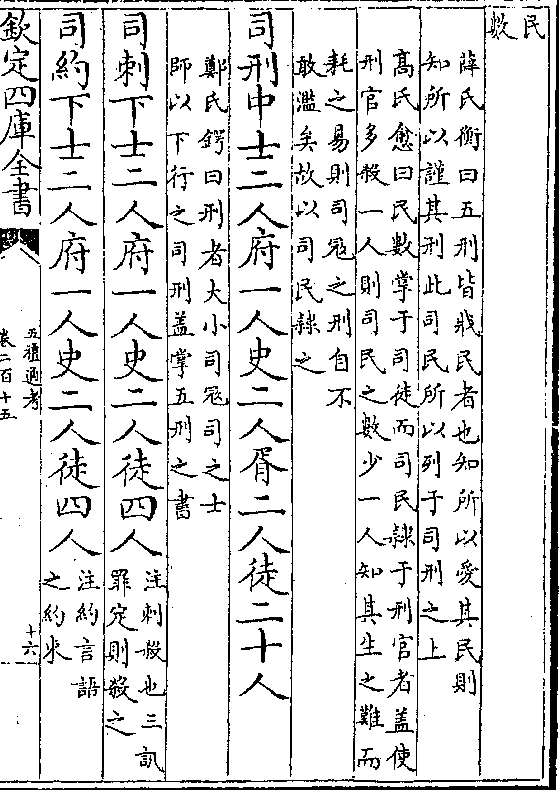 民
數
薛氏衡曰五刑皆戕民者也知所以愛其民則
知所以謹其刑此司民所以列于司刑之上
髙氏愈曰民數掌于司徒而司民隷于刑官者盖使
刑官多殺一人則司民之數少一人知其生之難而
耗之易則司冦之刑自不
敢濫矣故以司民隷之
司刑中士二人府一人史二人胥二人徒二十人
鄭氏鍔曰刑者大小司冦司之士
師以下行之司刑盖掌五刑之書
司刺下士二人府一人史二人徒四人
注刺殺也三訊
罪定則殺之
司約下士二人府一人史二人徒四人
注約言語
之約束
欽定四庫全書
五禮通考
卷二百十五
十六